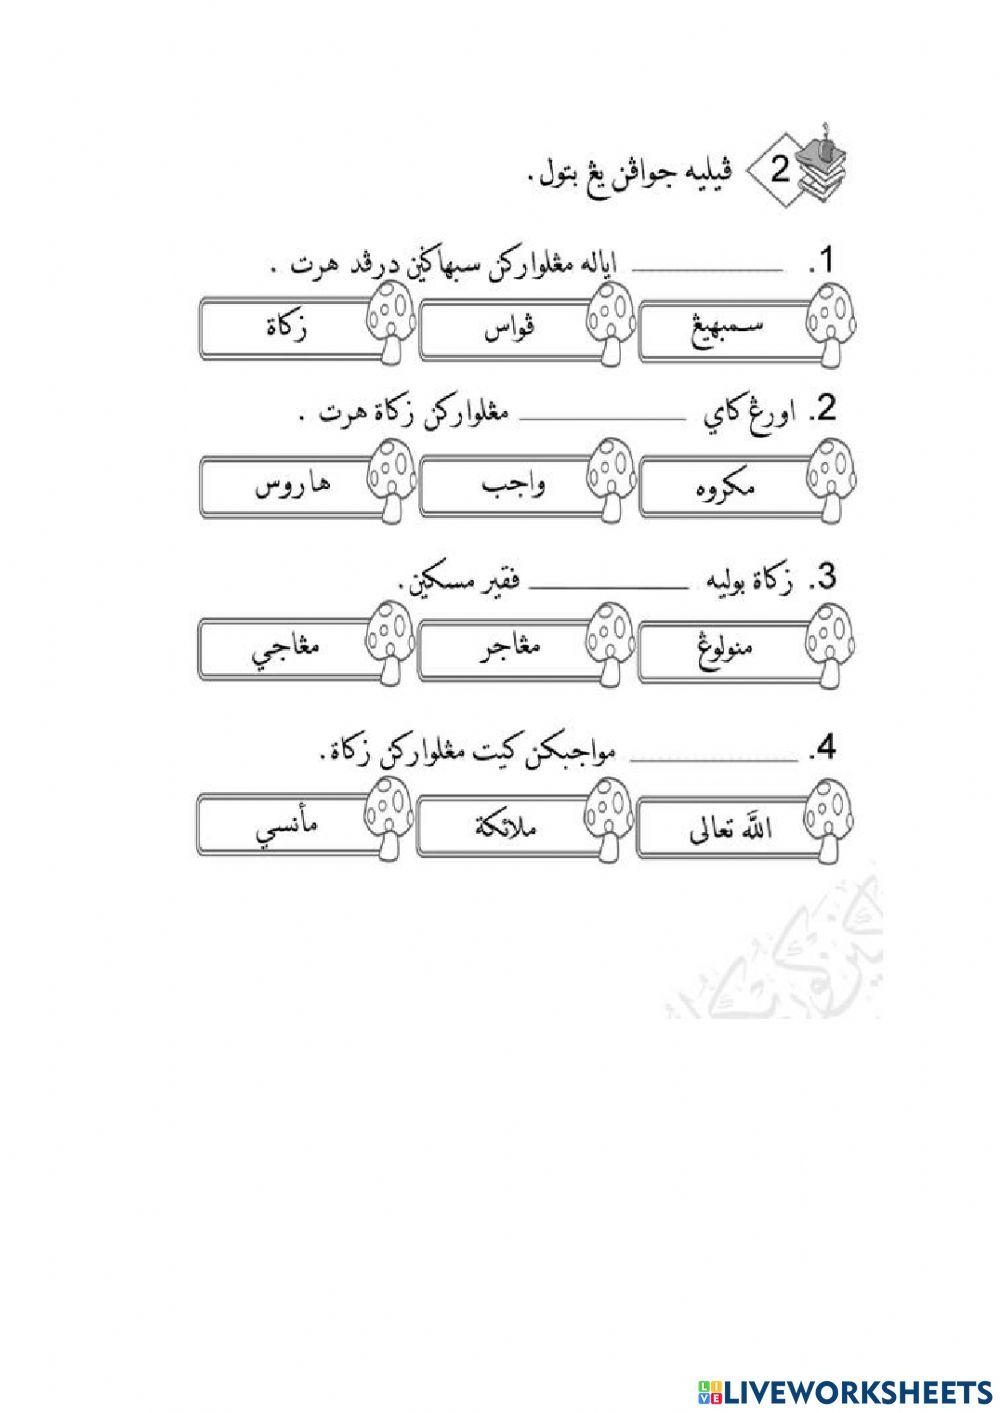 2 ڤيليه جواڤن يڠ بتول.
1. ــــــــــــــــ اياله مڠلواركن سبهاݢين درڤد هرت .
سمبهيڠ ڤواس زكاة
2. اورڠ كاي ــــــــــــــــ مڠلواركن زكاة هرت .
مكروه واجب هاروس
3. زكاة بوليه ــــــــــــــــ فقير مسكين.
منولوڠ مڠاجر مڠاجي
4. ــــــــــــــــ مواجبكن كيت مڠلواركن زكاة.
اللَّه تعالى ملائكة مأنسي
LIVE LIVEWORKSHEETS